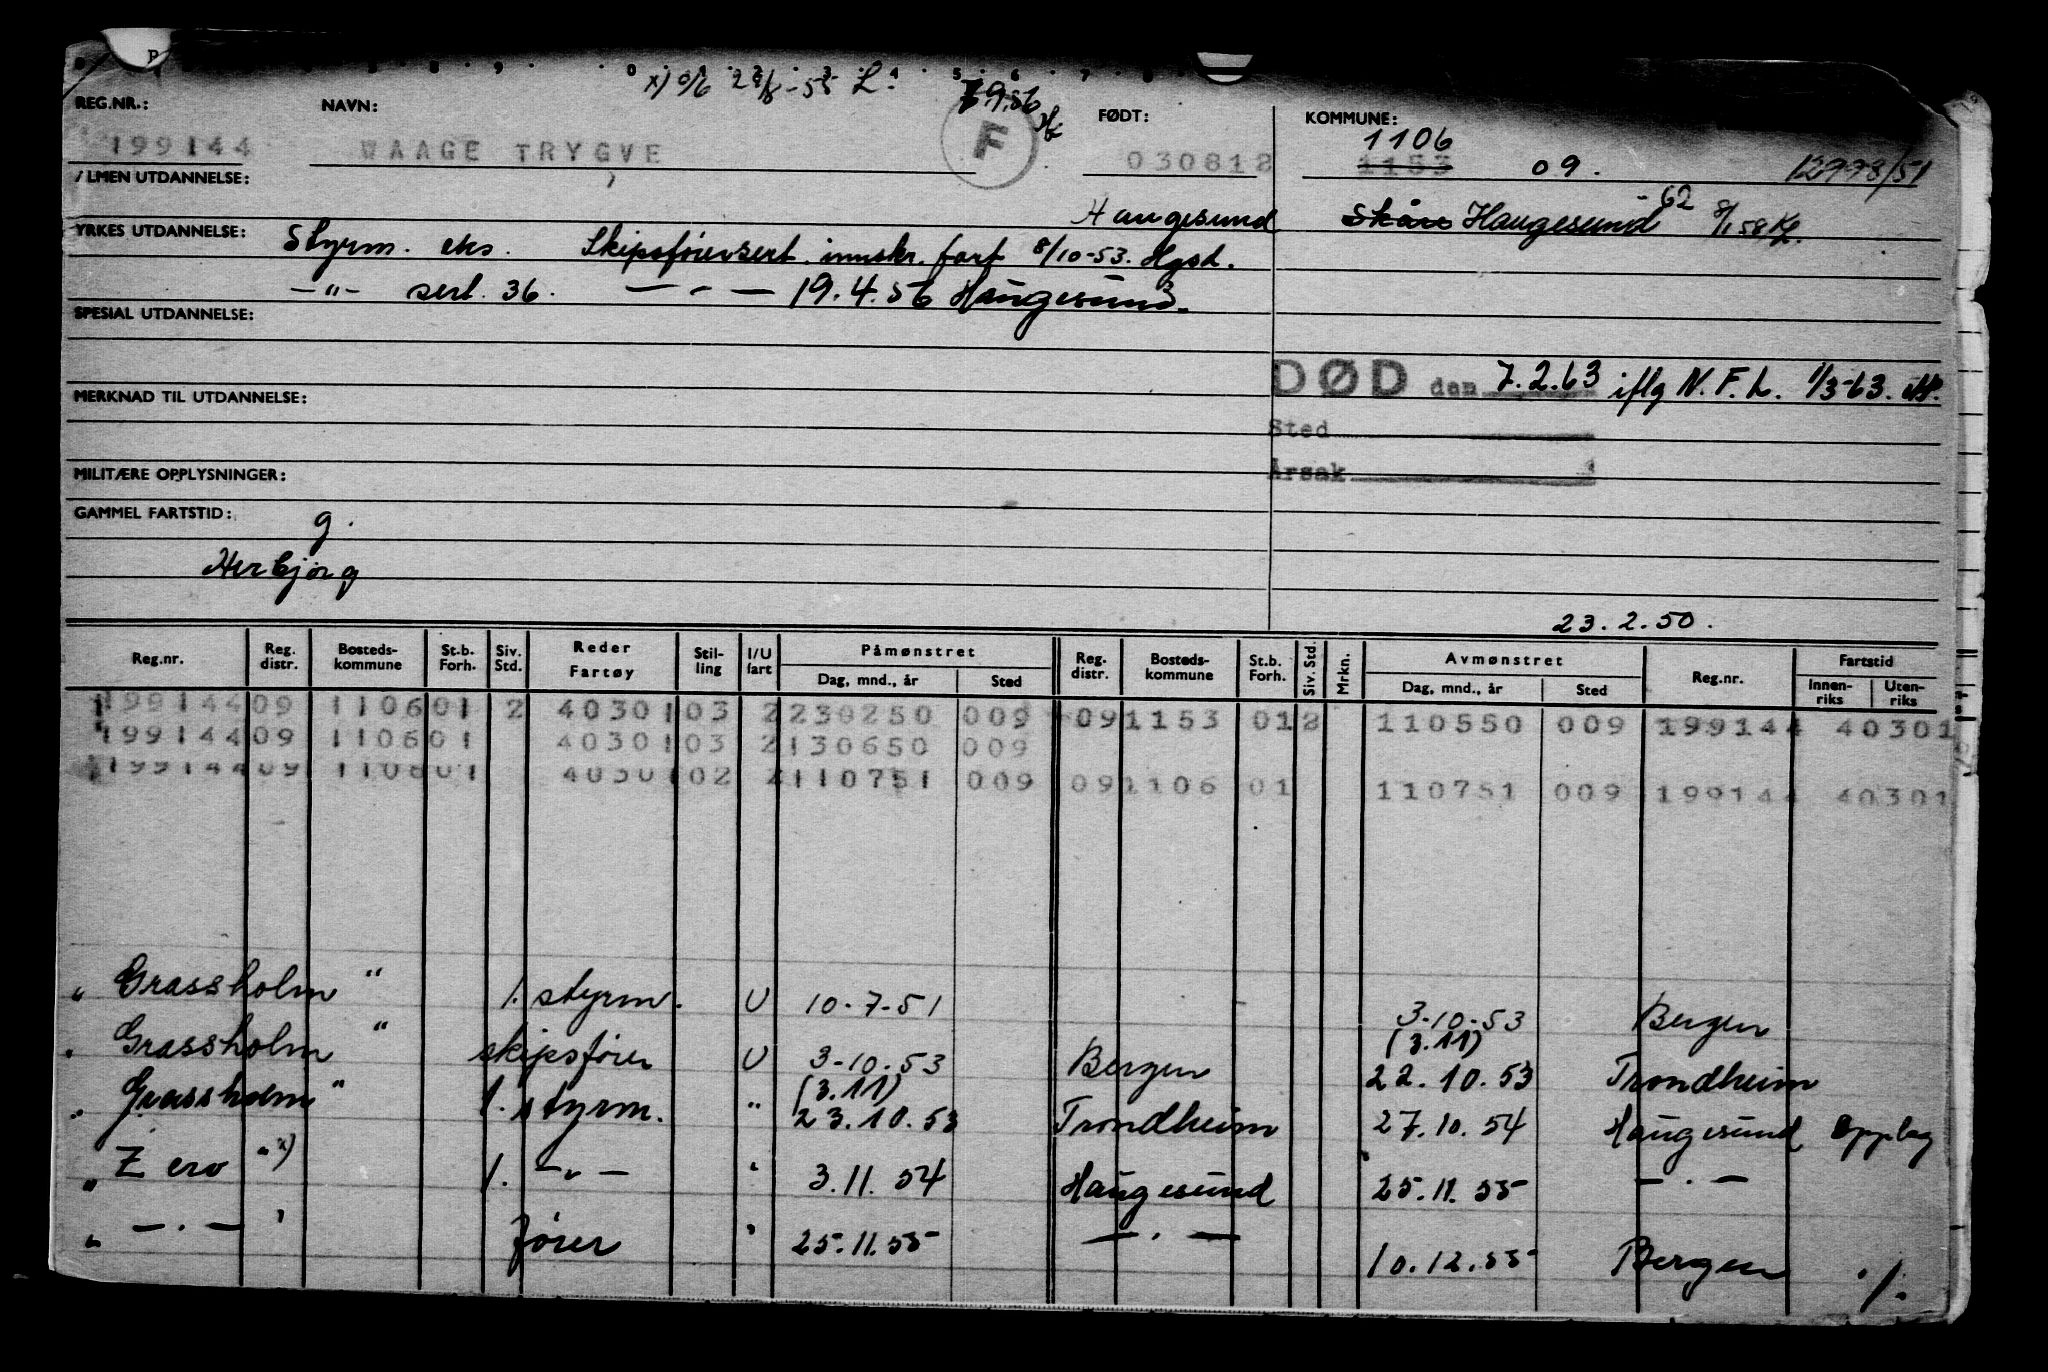 x) o/6 28/8-55 L. 7.9.56
REG.NR.: NAVN: FØDT: KOMMUNE:
199144 WAAGE TRYGVE F 030812 1106 1153 09. 12998/51
/LMEN UTDANNELSE:
Haugesund Skåre Haugesund -62 8/1 58
YRKES UTDANNELSE: Styrm. eks. Skipsførersert. innskr. fart 8/10-53. Hgsd.
-"- sert. 36. — " — 19.4.56 Haugesund.
SPESIAL UTDANNELSE:
DØD den 7.2.63 iflg N.F.L. 1/3-63.
MERKNAD TIL UTDANNELSE:
Sted
Årsak
MILITÆRE OPPLYSNINGER:
GAMMEL FARTSTID: g.
Herbjørg
23.2.50.
Reg.nr. Reg. distr. Bosteds-kommune St.b. Forh. Siv. Std. Reder Fartøy Stil-ling I/U fart Påmønstret Dag, mnd., år Sted Reg. distr. Bosteds-kommune St.b. Forh. Siv. Std. Mrkn. Avmønstret Dag, mnd., år Sted Reg.nr. Fartstid Innen-riks Uten-riks
199144 09 1106 01 2 40301 03 2 230250 009 09 1153 01 2 110550 009 199144 40301
199144 09 1106 01 40301 03 2 130650 009
199144 09 1106 01 40301 02 2 110751 009 09 1106 01 110751 009 199144 40301
" Grassholm " 1. styrm. U 10-7-51 3-10-53 Bergen
(3.11)
" Grassholm " skipsfører U 3-10.53 Bergen 22.10.53 Trondheim
(3.11)
" Grassholm " 1. styrm. " 23.10.53 Trondheim 27.10.54 Haugesund Opplag
" Zero " x) 1. -"- " 3.11.54 Haugesund 25.11.55 -"-
" -"- " fører " 25.11.55 -"- 10.12.55 Bergen ./.